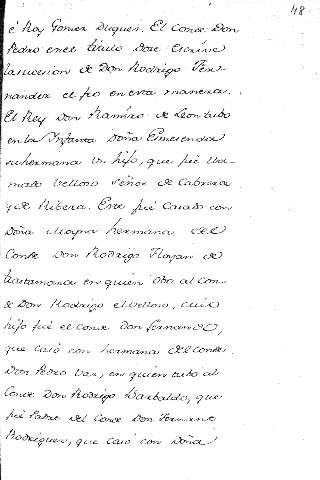 48
é Ruy Gomez Duques. El Conde Don
Pedro en el titulo doze escrive
la sucesion de Don Rodrigo Fer-
nandez el feo en esta manera.
El Rey Don Ramiro de Leon tubo
en la Infanta Doña Ermesenda
su hermana un hijo, que fue lla-
mado Velloso señor de Cabrera
y de Ribera. Este fué casado con
Doña Mayor hermana del
Conde Don Rodrigo Floyan de
trastamara en quien obo al con-
de Don Rodrigo el velloso, cuio
hijo fué el conde don fernando,
que casó con hermana del conde
Don Pedro Vaz, en quien tubo al
Conde Don Rodrigo Barbaldo, que
fué Padre del Conde Don Fernando
Rodriguez, que casó con Doña